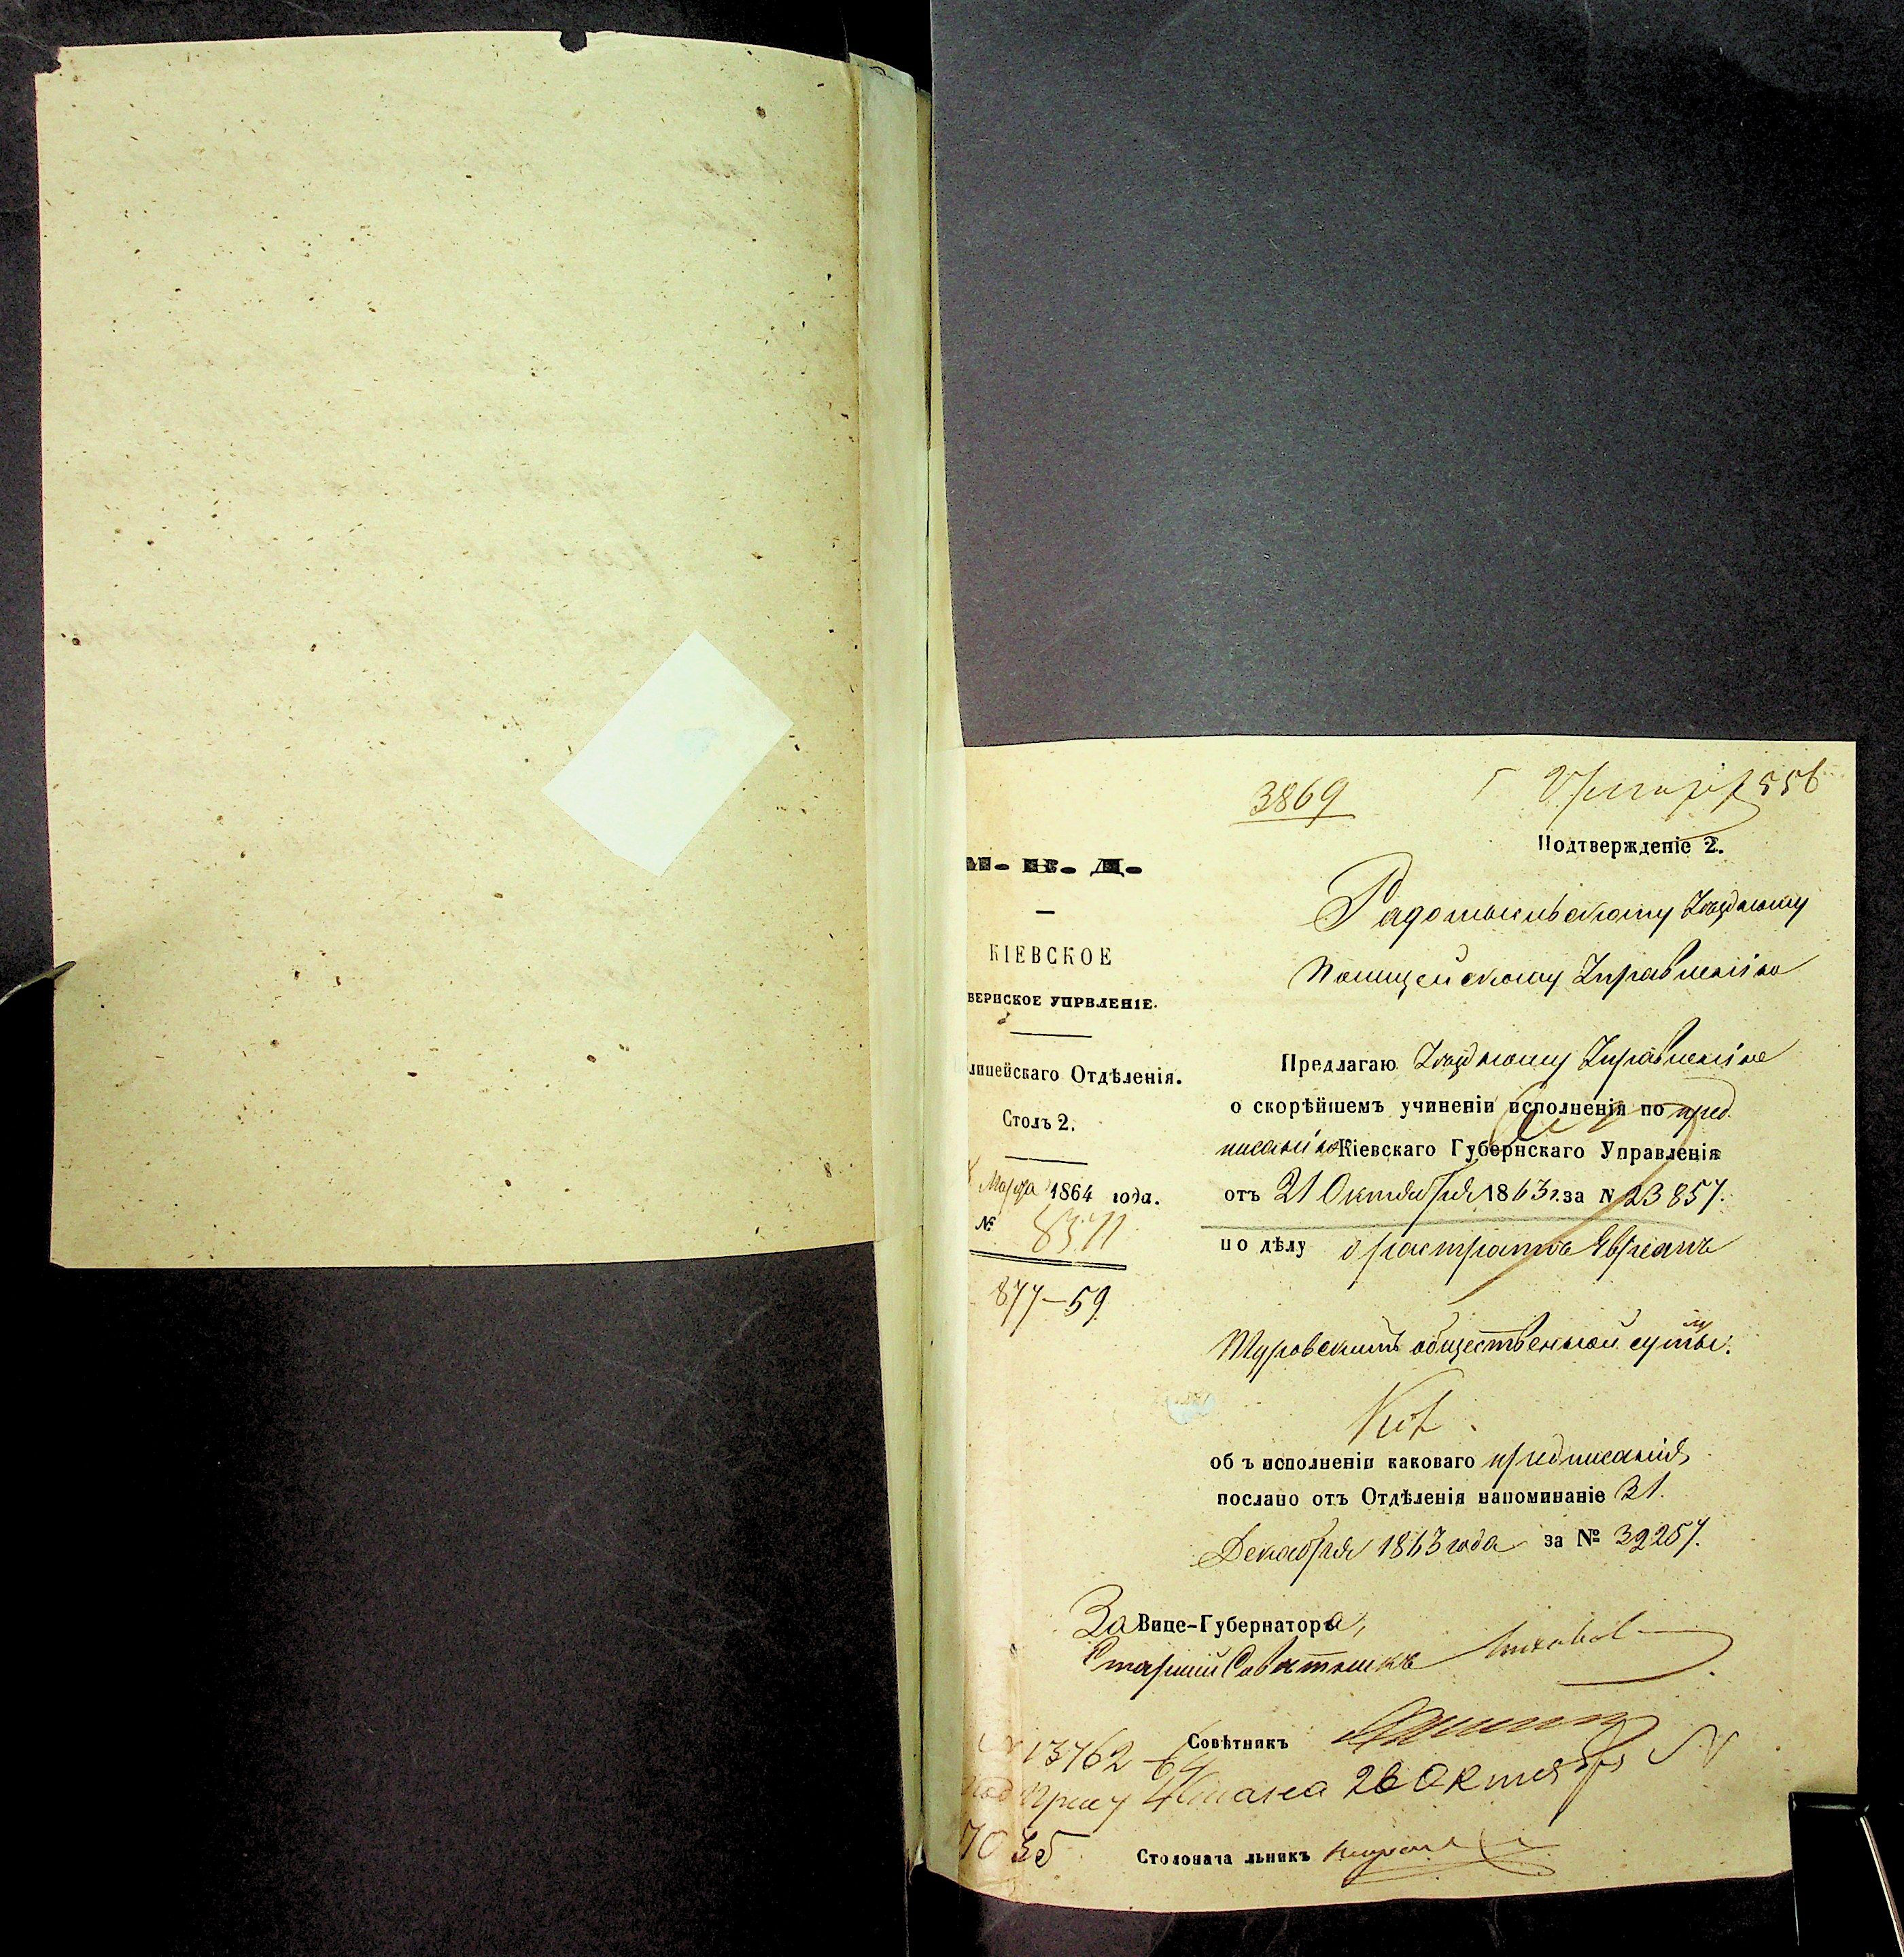 3869
556
Подтвержденіе 2.
М. В. Д.
КІЕВСКОЕ
ВЕРНСКОЕ УПРВЛЕНІЕ.
лицейскаго Отдѣленія.
Столъ 2.
Марта 1864 года.
№ 8371
877-59
Радомысльскому Уѣздному
Полицейскому Управленію
Предлагаю Уѣздному Управленію
о скорѣйшемъ учиненіи исполненія по пред
писанію Кіевскаго Губернскаго Управленія
отъ 21 Октября 1863 г. за N 23857.
по дѣлу о растратѣ Евреемъ
Туровскимъ общественной суммы.
объ исполненіи каковаго предписанія
послано отъ Отдѣленія напоминаніе 31.
Декабря 1863 года за № 39257.
За Вице-Губернатора,
Старшій Совѣтникъ
Совѣтникъ
13762-64
Прист 4 Стана 26 Октября N
7035
Столоначальникъ